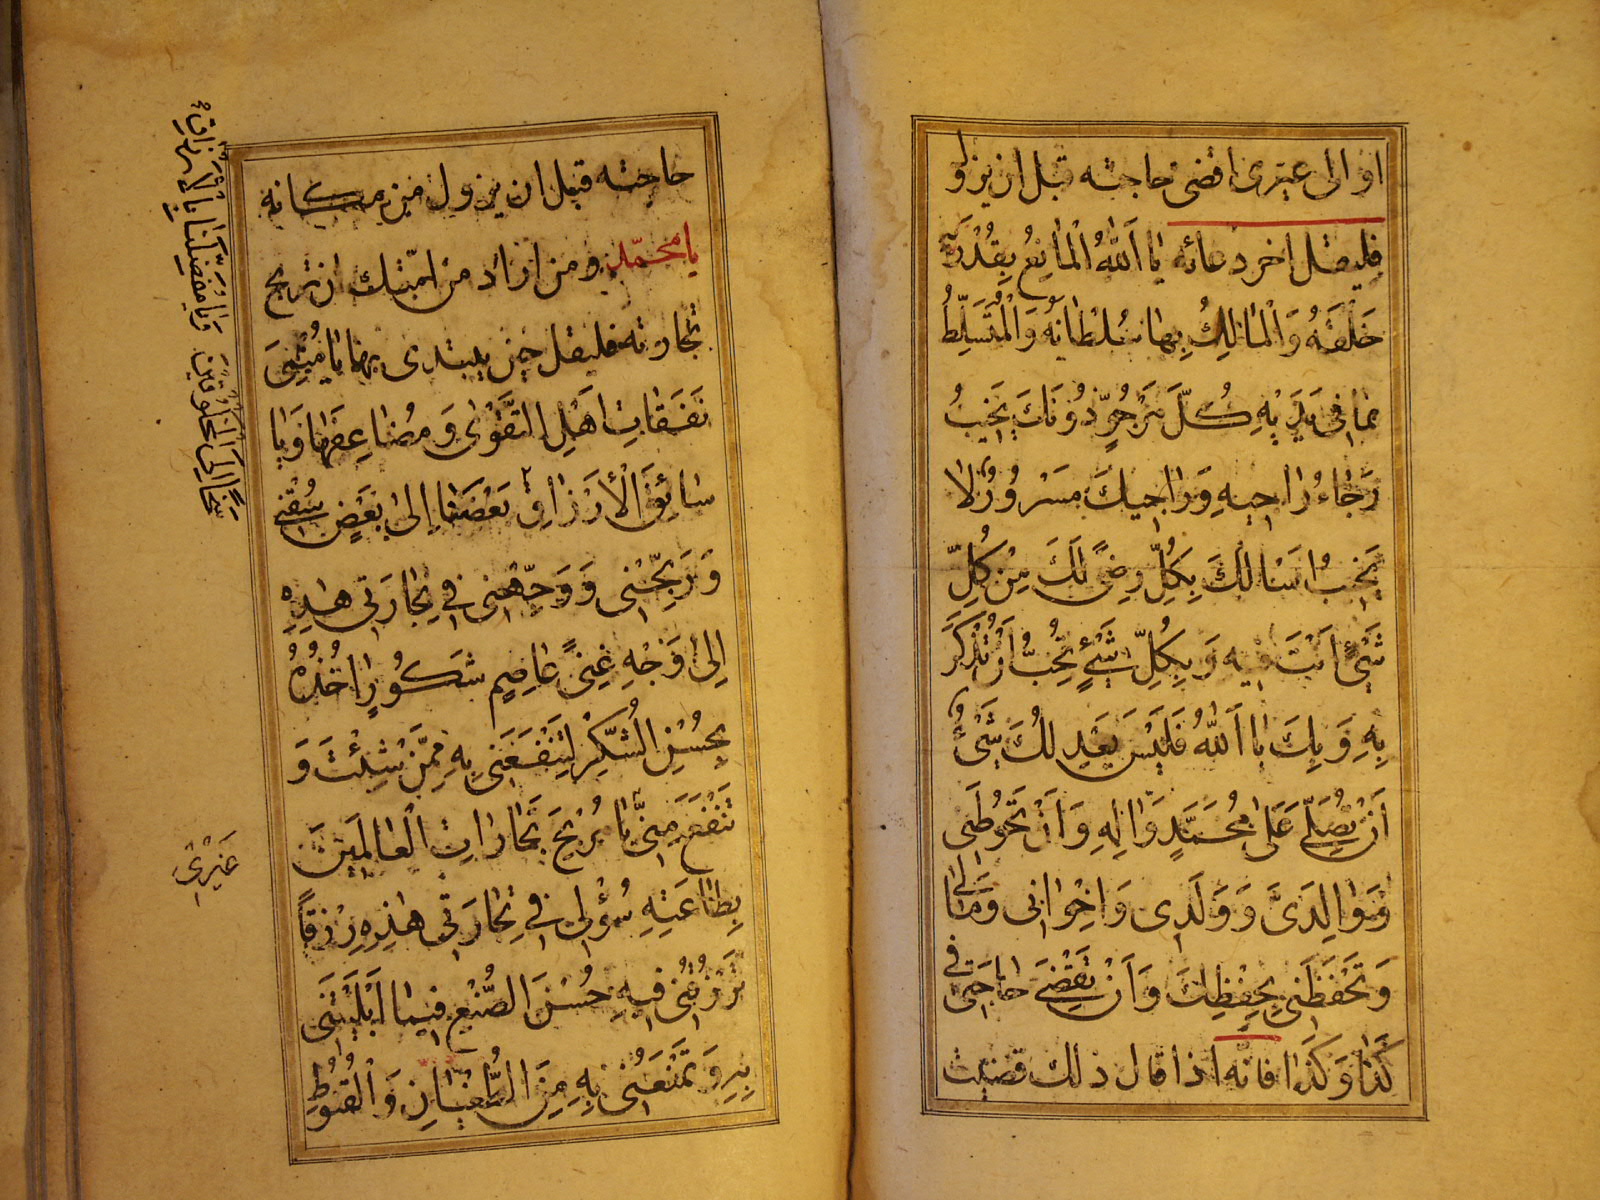 او الى غيرى اقضى حاجته قبل ان يزلو
فليقل اخر دعائه يا اَللهُ الْمانِعُ بِقُدْرَتِهِ
خَلْقَهُ وَالْمالِكُ بِها سُلْطانَهُ وَالْمُتَسَلِّطُ
بما فى يَدَيْهِ كُلُّ مَرْجُوٍّ دُونَكَ يَخيبُ
رَجاءُ راجيهِ وَراجيكَ مَسْرُورٌ لا
يَخيبُ اَسْالُكَ بِكُلِّ رِضىً لَكَ مِنْ كُلِّ
شَيْئٍ اَنْتَ فيهِ وَبِكُلِّ شَيْئٍ تُحِبُّ اَنْ تُذْكَرَ
بِهِ وَبِكَ يا اَللهُ فَلَيْسَ يَعْدِلُكَ شَيْئٌ
اَنْ تُصَلِّىَ عَلى مُحَمَّدٍ وَالِهِ وَاَنْ تَحُوطَنى
وَوالِدَىَّ وَوَلَدى وَاِخْوانى وَمالى
وَتَحْفَظَنى بِحِفْظِكَ وَاَنْ تَقْضِىَ حاجَتى فى
كَذا وَكَذا فانّه اذا قال ذلك قضيت
حاجته قبل ان يزول من مكانه
يا محمّد ومن اراد من امّتك ان تربح
تجارته فليقل حين يبتدى بها يا مُنْمِىَ
نَفَقاتِ اَهْلِ التَّقْوى وَمُضاعِفَها وَيا
سائِقَ الْاَرْزاقِ بَعْضَها اِلى بَعْضٍ سُقْنى
وَرَبِّحْنى وَوَجِّهْنى فى تِجارَتى هذِهِ
اِلى وَجْهِ غِنىً عاصِمٍ شَكُورٍ اخُذُهُ
بِحُسْنِ الشُّكْرِ لِتَنْفَعَنى بِهِ مِمَّنْ شِئْتَ وَ
تَنْفَعَ مِنّى يا مُرْبِحَ تِجاراتِ الْعالَمينَ
بِطاعَتِهِ سُؤْلى فى تِجارَتى هذِهِ رِزْقاً
تَرْزُقُنى فيهِ حُسْنَ الصُّنْعِ فيما اَبْلَيْتَنى
بِهِ وَتَمْنَعُنى بِهِ مِنَ الطُّغْيانِ وَالْقُنُوطِ